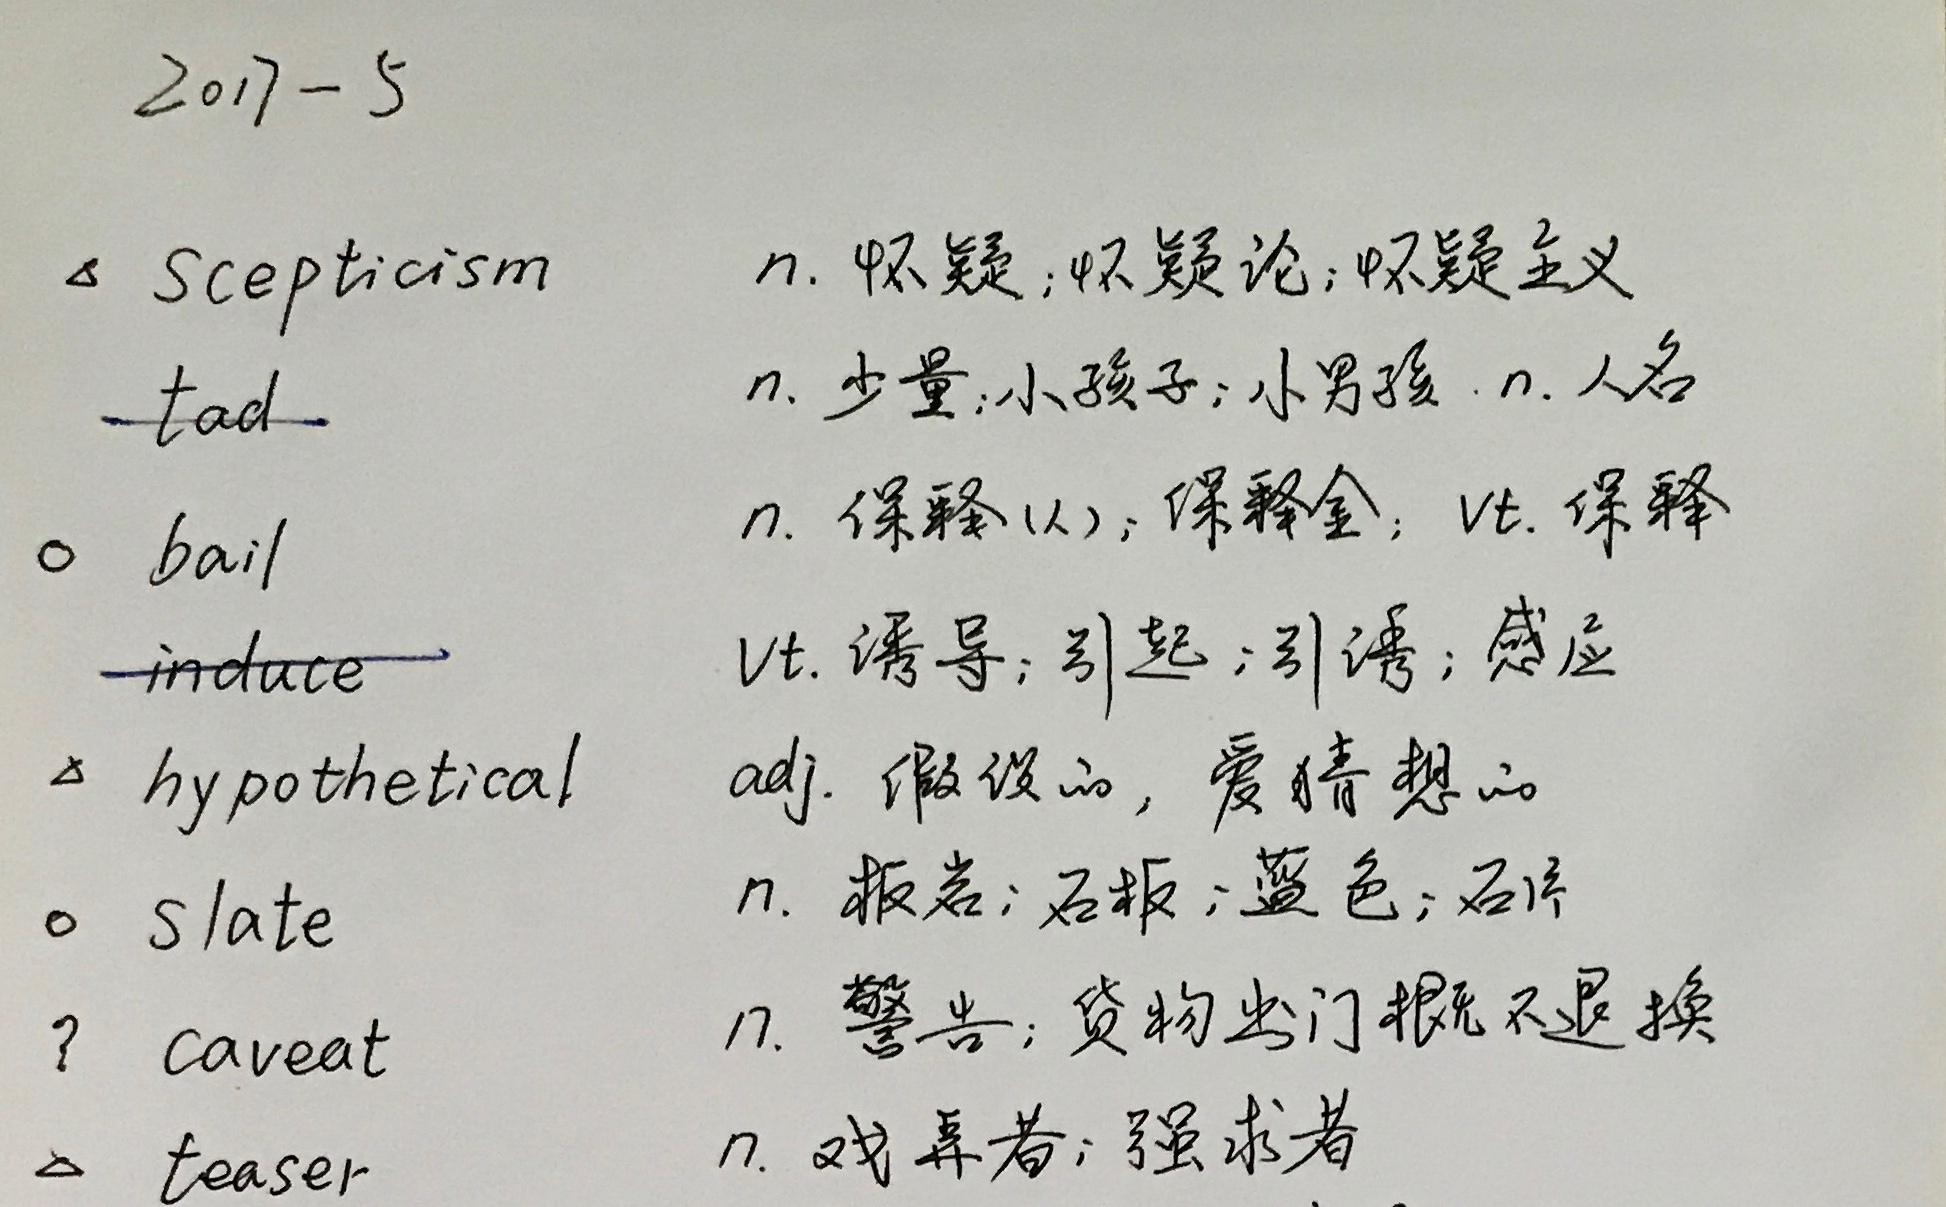 2017-5
△ scepticism n. 怀疑；怀疑论；怀疑主义
tad n. 少量；小孩子；小男孩. n. 人名
○ bail n. 保释(人)；保释金；vt. 保释
induce vt. 诱导；引起；引诱；感应
△ hypothetical adj. 假设的，爱猜想的
○ slate n. 板岩；石板；蓝色；石片
? caveat n. 警告；货物出门概不退换
△ teaser n. 戏弄者；强求者